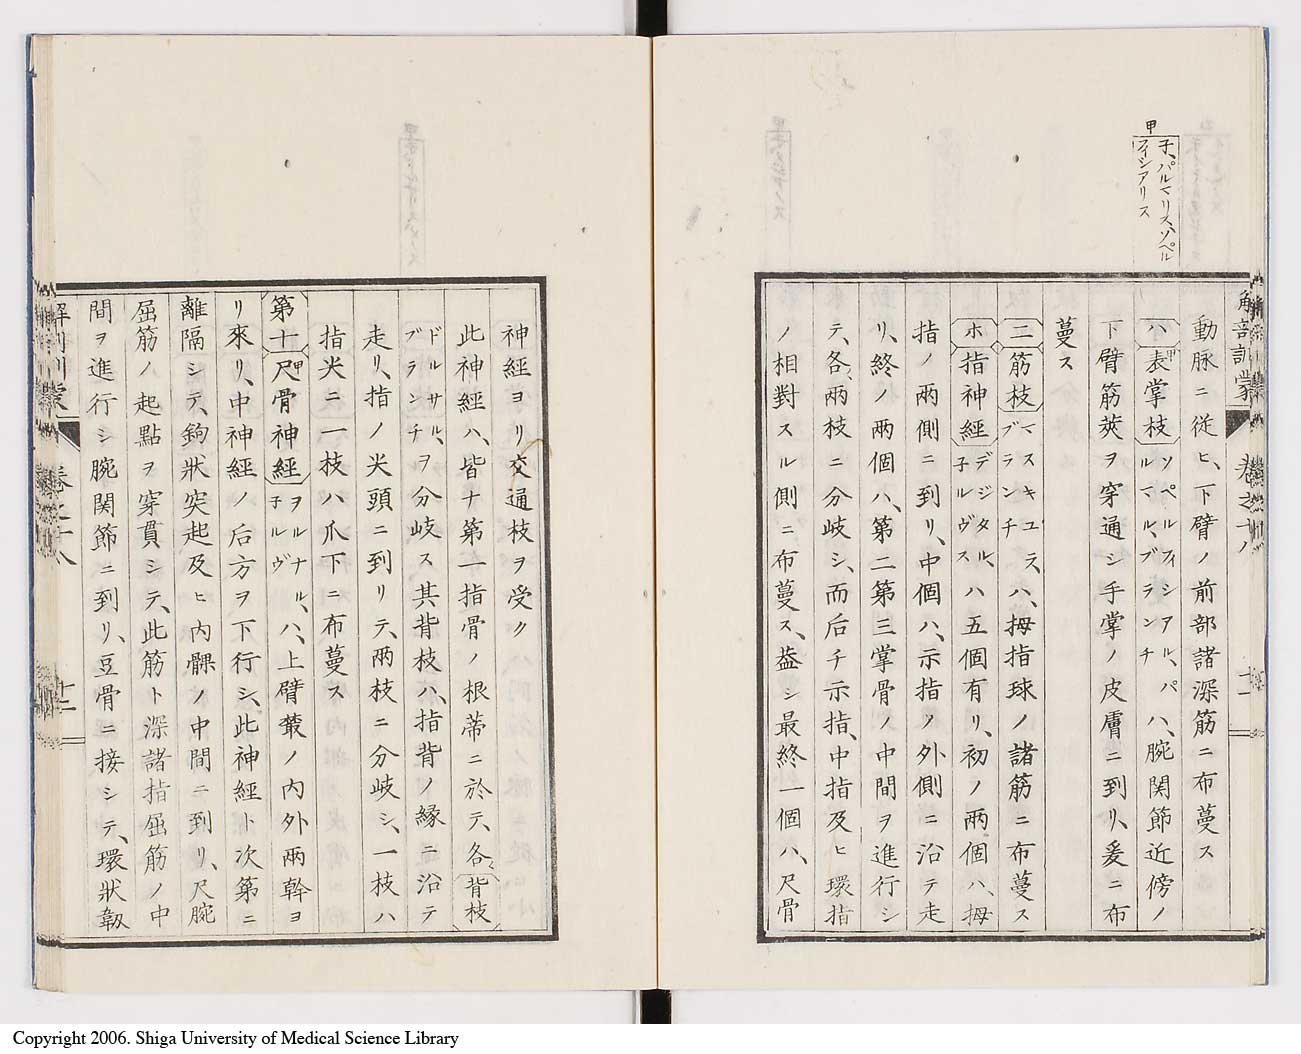 甲
子、パルマリス、ソペル
フイシアリス
解剖訓蒙
卷之十八
十一
動脈ニ従ヒ、下臂ノ前部諸深筋ニ布蔓ス
ハ表掌枝甲ソペルフィシアル、パルマル、ブランチハ、腕関節近傍ノ
下臂筋莢ヲ穿通シ手掌ノ皮膚ニ到リ、爰ニ布
蔓ス
ニ筋枝マスキユラ、ブランチハ、拇指球ノ諸筋ニ布蔓ス
ホ指神經デジタル、子ルヴスハ五個有リ、初ノ兩個ハ、拇
指ノ兩側ニ到リ、中個ハ、示指ノ外側ニ沿テ走
リ、終ノ兩個ハ、第二第三掌骨ノ中間ヲ進行シ
テ、各〻兩枝ニ分岐シ、而后チ示指、中指及ヒ環指
ノ相對スル側ニ布蔓ス、葢シ最終一個ハ、尺骨
神經ヨリ交通枝ヲ受ク
此神經ハ、皆ナ第一指骨ノ根蒂ニ於テ、各〻背枝
ドルサル、ブランチヲ分岐ス其背枝ハ、指背ノ縁ニ沿テ
走リ、指ノ尖頭ニ到リテ、兩枝ニ分岐シ、一枝ハ
指尖ニ一枝ハ爪下ニ布蔓ス
第十尺骨神經甲ヲルナル、子ルヴハ、上臂叢ノ内外兩幹ヨ
リ來リ、中神經ノ后方ヲ下行シ、此神經ト次第ニ
離隔シテ、鉤狀突起及ヒ内髁ノ中間ニ到リ、尺腕
屈筋ノ起點ヲ穿貫シテ、此筋ト深諸指屈筋ノ中
間ヲ進行シ腕関節ニ到リ、豆骨ニ接シテ、環狀韌
解剖訓蒙
卷之十八
十二
Copyright 2006. Shiga University of Medical Science Library